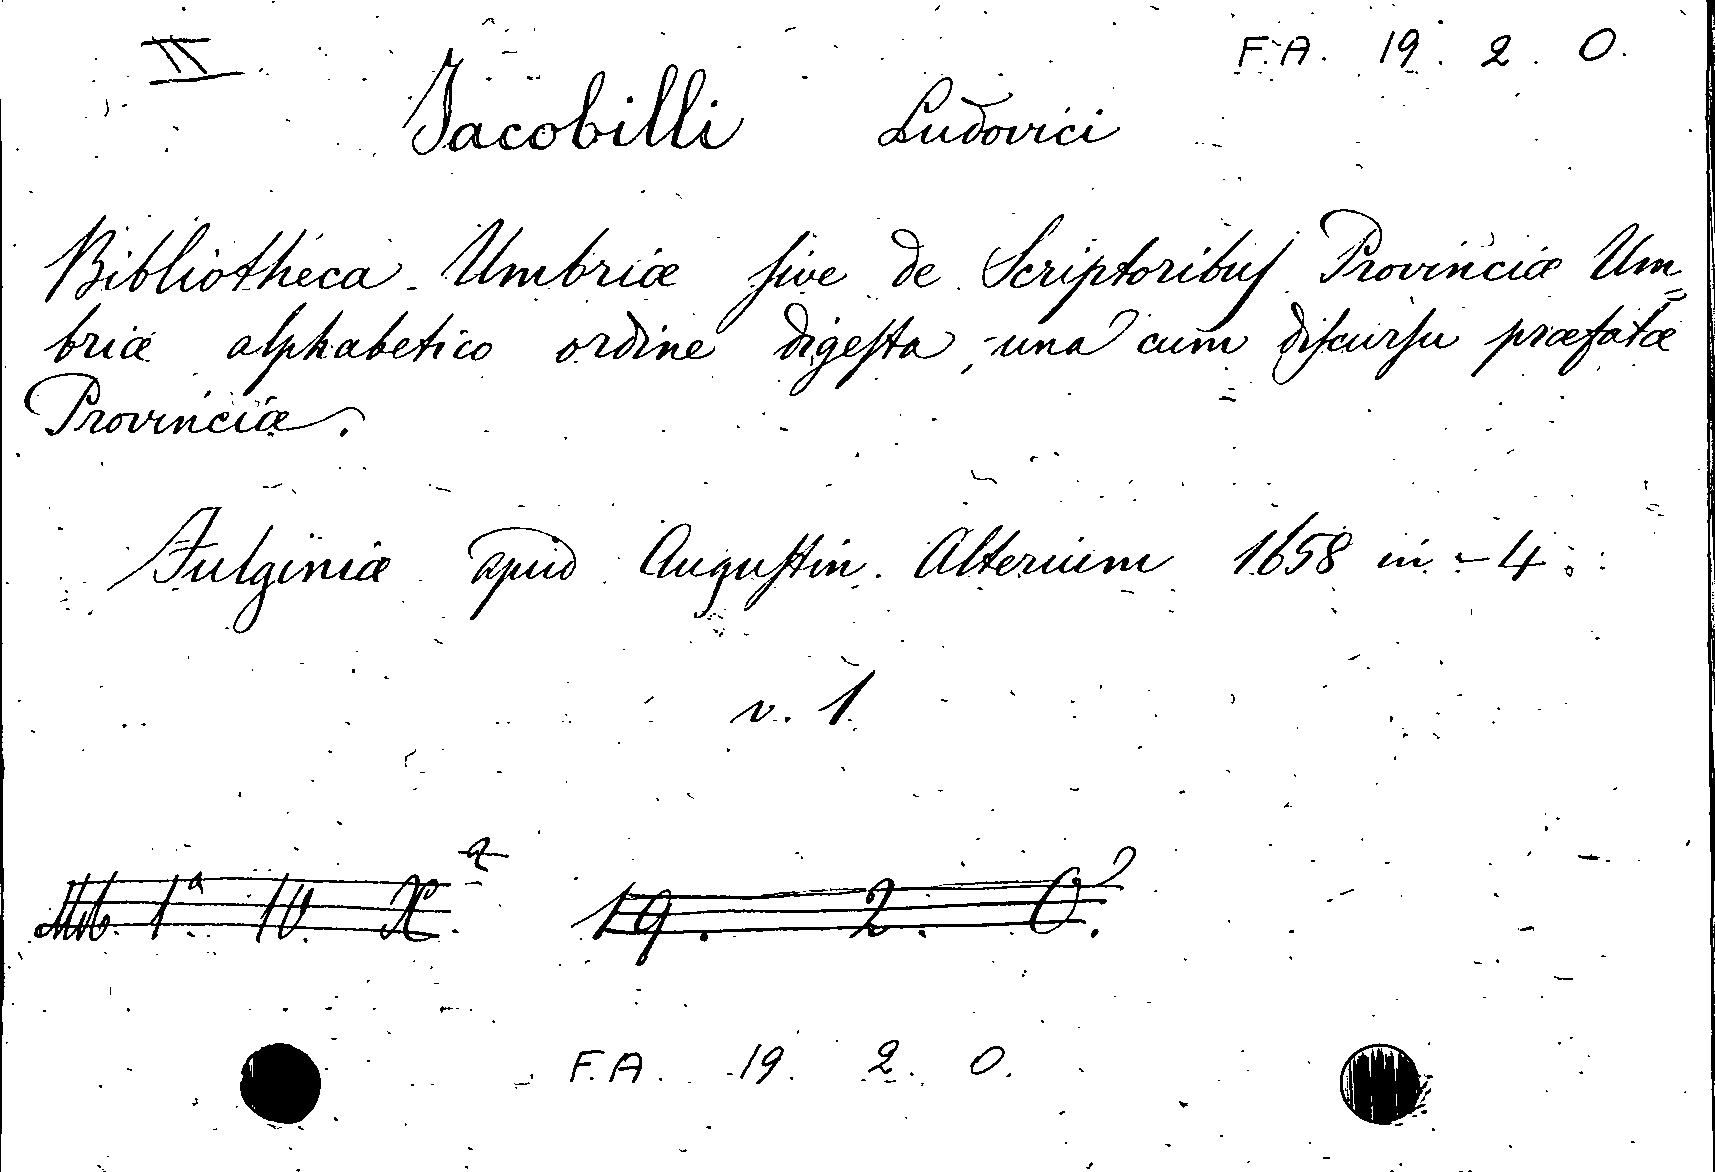 II F.A. 19. 2. O.
Jacobilli Ludovici
Bibliotheca Umbriæ ſive de Scriptoribuſ Provinciæ Um=
briæ alphabetico ordine digeſta, una cum diſcurſu præfatæ
Provinciæ.
Fulginiæ apud Auguſtin. Alterium 1658 in-4°.
v. 1
1ª 10. X. 19. 2. O.
F.A. 19. 2. O.